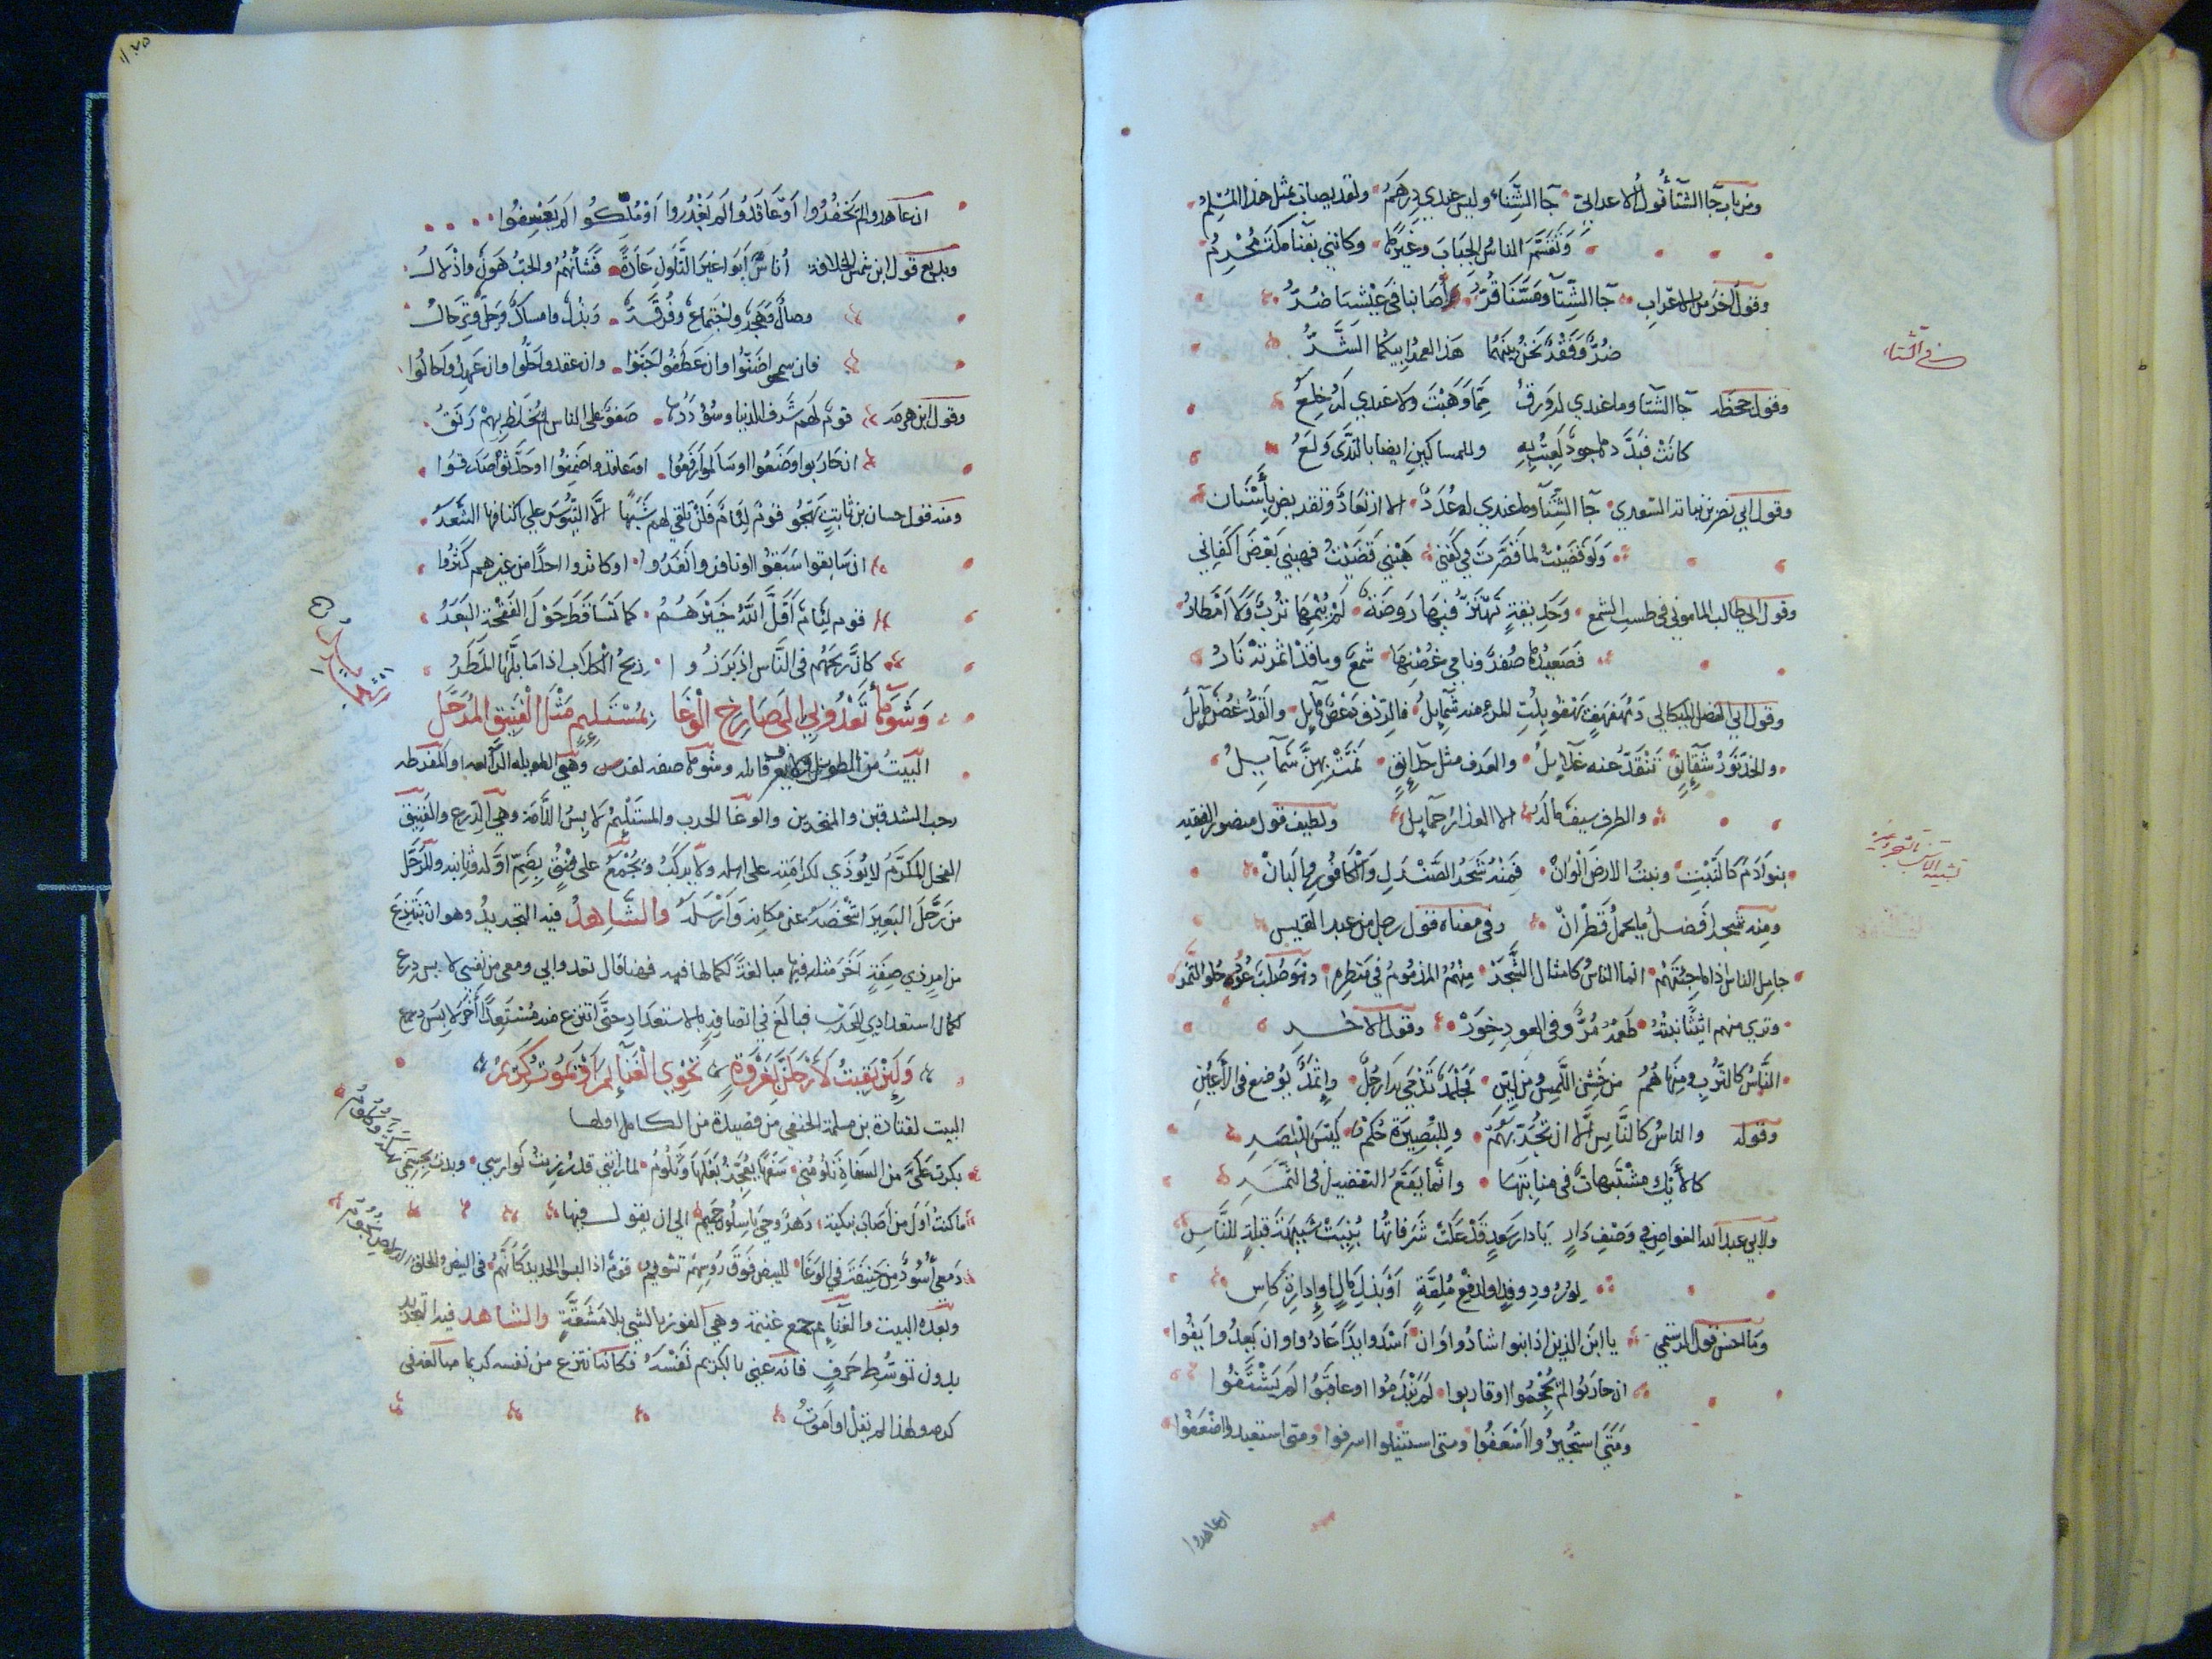 ومن باب جا الشتا قول الاعرابي جآ الشتاء وليس عندي درهم ولقد يصاب بمثل هذا المسلم
وتقسم الناس الجباب وغيرها وكانني بفنا مكة محرم
وقول اخر من الاعراب جآ الشتآ ومسنا قر واصابنا في عيشنا ضر
ضر وفقر نحن بينهما هذا لعمر ابيكما الشر
وقول جحظه جا الشتا وما عندي له ورق مما وهبت ولا عندي له خلع
كانت فبددها جود لعبت به وللمساكين ايضا بالندى ولع
وقول ابي نصر بن نباته السعدي جآ الشتآ وما عندي له عدد الا ارتعاد وتقريض باسنان
ولو قضيت لما قصرت في كفني هبني قضيت فهبني بعض اكفاني
وقول ابي طالب الماموني في طست الشمع وحديقة تهتز فيها روضة لم ينمها ترب ولا امطار
فصعيدها صفر ونامي غصنها شمع وما قد اثمرته نار
وقول ابي الفضل الميكالي ومهفهف تهفو بلب المرء منه شمايل فالردف دعص هايل والقد غصن مايل
والخد نور شقايق تنقد عنه غلايل والعرف مثل حدايق نمت بهن شمايل
والطرف سيف ماله الا العذار حمايل ولطيف قول منصور الفقيه
بنو ادم كالنبت ونبت الارض الوان فمنه شجر الصندل والكافور والبان
ومنه شجر افضل ما يحمل قطران وفي معناه قول رجل من عبد القيس
جامل الناس اذا ما جئتهم انما الناس كامثال الشجر منهم المذموم في منظره وهو صلب عوده حلو الثمر
وترى منهم اثيثا نبته طعمه مر وفي العود خور وقول الاخر
الناس كالترب ومنها هم من خشن اللمس ومن لين فجلمد تدمى به ارجل واثمد يوضع في الاعين
وقوله والناس كالناس الا ان تجربهم وللبصيرة حكم ليس للبصر
كالايك مشتبهات في منابتها وانما يقع التفضيل في الثمر
ولابي عبد الله الغواص في وصف دار يا دار سعد قد علت شرفاتها بنيت شبيهة قبلة للناس
لورود وفد او لدفع ملمة او بذل مال او ادارة كاس
وما احسن قول الرستمي يا ابن الذين اذا بنوا شادوا وان اسدوا يدا عادوا وان يعدوا يفوا
ان حاربوا لم يحجموا او قاربوا لم يندموا او عاقبوا لم يشتفوا
ومتى استجيروا اسعفوا ومتى استنيلوا اسرفوا ومتى استعيدوا اضعفوا
ان عاهدوا
في الشتاء
ان عاهدوا لم يخفروا او عاقدوا لم يغدروا او ملكوا لم يعسفوا
وبديع قول ابن شمس الخلافة اناس ابوا غير التلون عادة فشانهم والحب هون واذلال
وصال وهجر واجتماع وفرقة وبذل وامساك وحل وترحال
فان سمحوا ضنوا وان عطفوا جنوا وان عقدوا حلوا وان عهدوا حالوا
وقول ابن هرمه قوم لهم شرف الدنيا وسوددها صفو على الناس لم يخلط بهم رنق
ان حاربوا وضعوا او سالموا رفعوا او عاقدوا ضمنوا او حدثوا صدقوا
ومنه قول حسان بن ثابت يهجو قوم لئام فلن تلقى لهم شبها الا التيوس على اكتافها الشعر
ان سابقوا سبقوا او نافروا نفروا او كاثروا احدا من غيرهم كثروا
قوم لئام اقل الله خيرهم كما تساقط حول الفقحة البعر
كان ريحهم في الناس اذ برزوا ريح الكلاب اذا ما بلها المطر
وشوهآ تعدو بي الى صارخ الوغا بمستلئم مثل الفنيق المرحل
البيت من الطويل ولا يعرف قايله وشوها صفه لفرس وهي الطويله الرائعه او المفرطه
رحب الشدقين والمنخرين والوغا الحرب والمستلئم لابس اللأمة وهي الدرع والفنيق
الفحل المكرم لا يوذى لكرامته على اهله ولا يركب وتجمع على فنق بضم اوله وثانيه والمرحل
من رحل البعير اشخصه عن مكانه وارسله والشاهد فيه التجريد وهو ان ينتزع
من امر ذي صفة آخر مثله فيها مبالغة لكمالها فيه فهنا قال تعدو بي ومعي من نفسي لابس درع
لكمال استعدادي للحرب فبالغ في اتصافه بالاستعداد حتى انتزع منه مستعدا آخر لابس درع
ولئن بقيت لارحلن بغزوة تحوي الغنايم او يموت كريم
البيت لقتادة بن مسلمة الحنفي من قصيدة من الكامل اولها
بكرت علي من السفاة تلومني سفها يعجز بعلها وتلوم لما راتني قد رزيت فوارسي وبدت بجسمي نهكة وكلوم
ما كنت اول من اصاب بنكبة دهر وحي باسلون حميم الى ان يقول فيها
ومعي اسود من حنيفة في الوغا للبيض فوق روسهم تسويم قوم اذا لبسوا الحديد كانهم في البيض والحلق الدلاص نجوم
وبعده البيت والغنايم جمع غنيمة وهي الفوز بالشي بلا مشقة والشاهد فيه التجريد
بدون توسط حرف فانه عنى بالكريم نفسه فكانه انتزع من نفسه كريما مبالغة في
كرمه ولهذا لم يقل او اموت